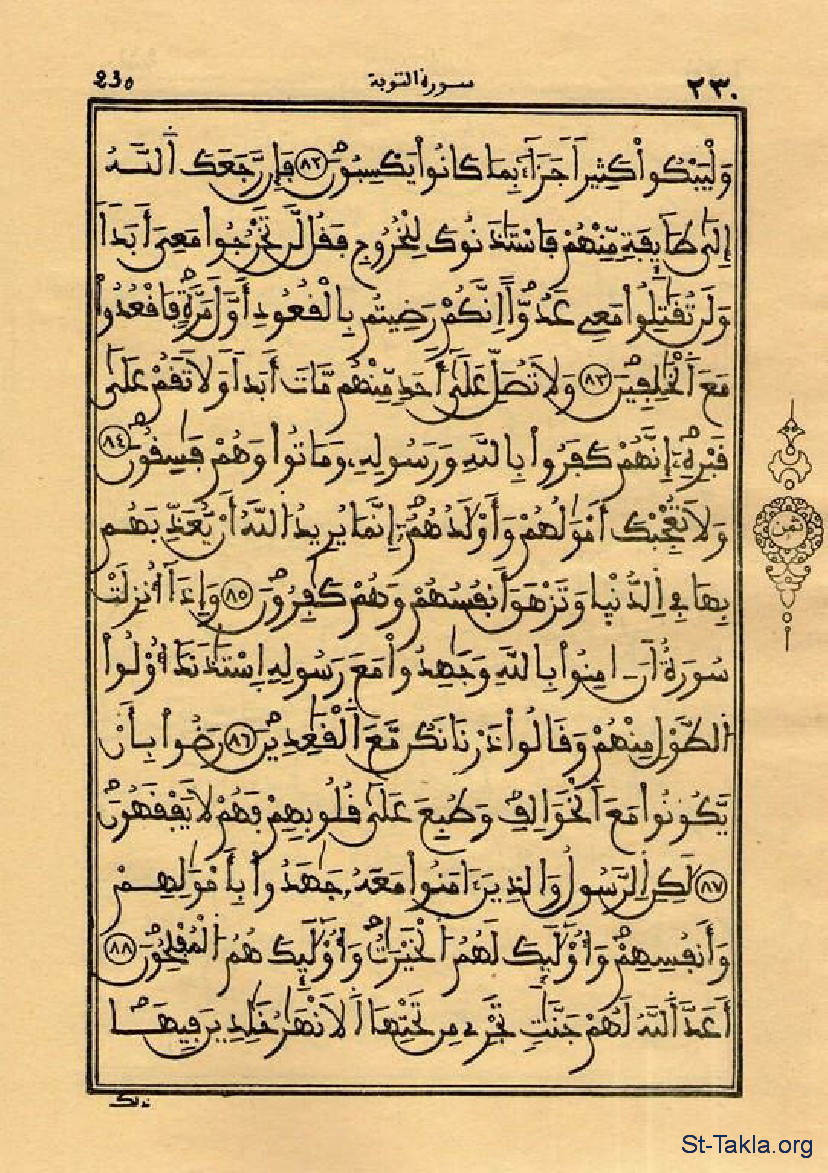 230 سورة التوبة ٢٣٠
وَلْيَبْكُواْ كَثِيراً جَزَآءَۢ بِمَا كَانُواْ يَكْسِبُونَ ٨٢ فَإِن رَّجَعَكَ اَللَّهُ
إِلَىٰ طَآئِفَةٖ مِّنْهُمْ فَاسْتَـٰٔذَنُوكَ لِلْخُرُوجِ فَقُل لَّن تَخْرُجُواْ مَعِيَ أَبَداً
وَلَن تُقَٰتِلُواْ مَعِي عَدُوّاً اِنَّكُمْ رَضِيتُم بِالْقُعُودِ أَوَّلَ مَرَّةٖ فَاقْعُدُواْ
مَعَ اَلْخَٰلِفِينَ ٨٣ وَلَا تُصَلِّ عَلَىٰٓ أَحَدٖ مِّنْهُم مَّاتَ أَبَداً وَلَا تَقُمْ عَلَىٰ
قَبْرِهِۦٓ إِنَّهُمْ كَفَرُواْ بِاللَّهِ وَرَسُولِهِۦ وَمَاتُواْ وَهُمْ فَٰسِقُونَ ٨٤
وَلَا تُعْجِبْكَ أَمْوَٰلُهُمْ وَأَوْلَٰدُهُمُۥٓ إِنَّمَا يُرِيدُ اُللَّهُ أَنْ يُّعَذِّبَهُم
بِهَا فِي اِلدُّنْيَا وَتَزْهَقَ أَنفُسُهُمْ وَهُمْ كَٰفِرُونَ ٨٥ وَإِذَآ أُنزِلَتْ
سُورَةٌ أَنَ اٰمِنُواْ بِاللَّهِ وَجَٰهِدُواْ مَعَ رَسُولِهِ اِسْتَـٰٔذَنَكَ أُوْلُواْ
اُلطَّوْلِ مِنْهُمْ وَقَالُواْ ذَرْنَا نَكُن مَّعَ اَلْقَٰعِدِينَ ٨٦ رَضُواْ بِأَنْ
يَّكُونُواْ مَعَ اَلْخَوَالِفِ وَطُبِعَ عَلَىٰ قُلُوبِهِمْ فَهُمْ لَا يَفْقَهُونَ
٨٧ لَٰكِنِ اِلرَّسُولُ وَالذِينَ ءَامَنُواْ مَعَهُۥ جَٰهَدُواْ بِأَمْوَٰلِهِمْ
وَأَنفُسِهِمْ وَأُوْلَٰٓئِكَ لَهُمُ اُلْخَيْرَٰتُ وَأُوْلَٰٓئِكَ هُمُ اُلْمُفْلِحُونَ ٨٨
أَعَدَّ اَللَّهُ لَهُمْ جَنَّٰتٖ تَجْرِے مِن تَحْتِهَا اَلَانْهَٰرُ خَٰلِدِينَ فِيهَا
ذلك
ثمن
St-Takla.org